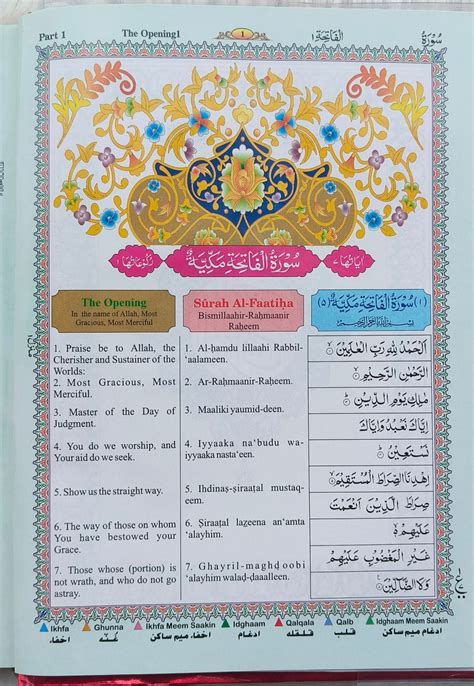 Part 1 The Opening1 1 اَلْفَاتِحَة ١ سُوْرَةُ
اٰيَاتُهَا ٧ سُوْرَةُ الْفَاتِحَةِ مَكِّيَّةٌ رُكُوْعَاتُهَا
The Opening
In the name of Allah, Most
Gracious, Most Merciful
1. Praise be to Allah, the
Cherisher and Sustainer of the
Worlds:
2. Most Gracious, Most
Merciful.
3. Master of the Day of
Judgment.
4. You do we worship, and
Your aid do we seek.
5. Show us the straight way.
6. The way of those on whom
You have bestowed your
Grace.
7. Those whose (portion) is
not wrath, and who do not go
astray.
Sūrah Al-Faatiḥa
Bismillaahir-Raḥmaanir
Raḥeem
1. Al-ḥamdu lillaahi Rabbil-
'aalameen.
2. Ar-Raḥmaanir-Raḥeem.
3. Maaliki yaumid-deen.
4. Iyyaaka na'budu wa-
iyyaaka nasta'een.
5. Ihdinaṣ-ṣiraaṭal mustaq-
eem.
6. Ṣiraaṭal lazeena an'amta
'alayhim.
7. Ghayril-maghḍoobi
'alayhim walaḍ-ḍaaalleen.
(١) سُوْرَةُ الْفَاتِحَةِ مَكِّيَّةٌ (٥)
بِسْمِ اللهِ الرَّحْمٰنِ الرَّحِيْمِ
اَلْحَمْدُ لِلّٰهِ رَبِّ الْعٰلَمِيْنَ ۙ
الرَّحْمٰنِ الرَّحِيْمِ ۙ
مٰلِكِ يَوْمِ الدِّيْنِ ؕ
اِيَّاكَ نَعْبُدُ وَاِيَّاكَ
نَسْتَعِيْنُ ؕ
اِهْدِنَا الصِّرَاطَ الْمُسْتَقِيْمَ ۙ
صِرَاطَ الَّذِيْنَ اَنْعَمْتَ
عَلَيْهِمْ
غَيْرِ الْمَغْضُوْبِ عَلَيْهِمْ
وَلَا الضَّآلِّيْنَ
Ikhfa Ghunna Ikhfa Meem Saakin Idghaam Qalqala Qalb Idghaam Meem Saakin
اخفاء غنّه اخفاء ميم ساكن ادغام قلقله قلب ادغام ميم ساكن